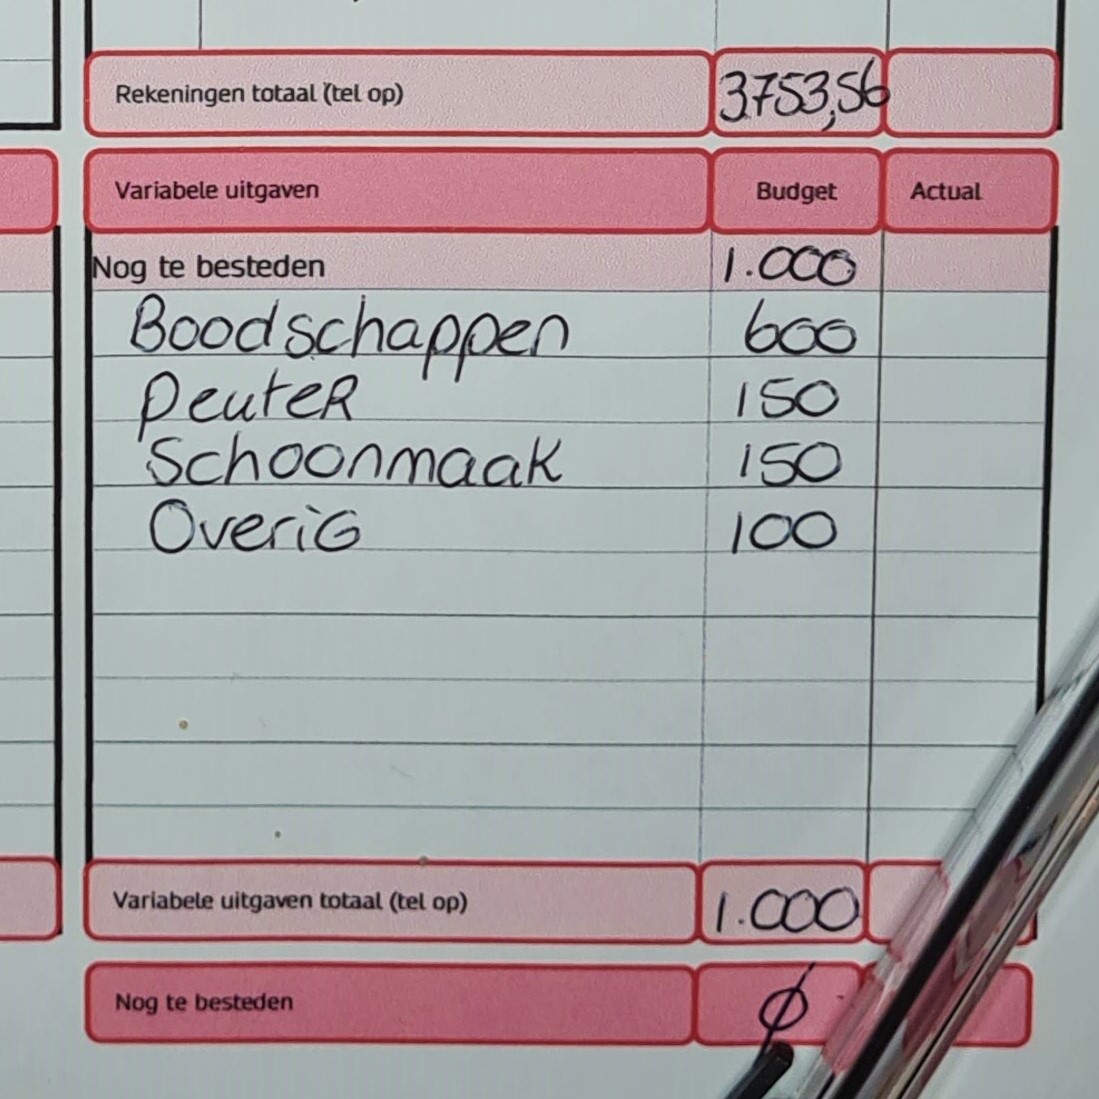 Rekeningen totaal (tel op) 3.753,56
Variabele uitgaven Budget Actual
Nog te besteden 1.000
Boodschappen 600
Peuter 150
Schoonmaak 150
Overig 100
Variabele uitgaven totaal (tel op) 1.000
Nog te besteden Ø